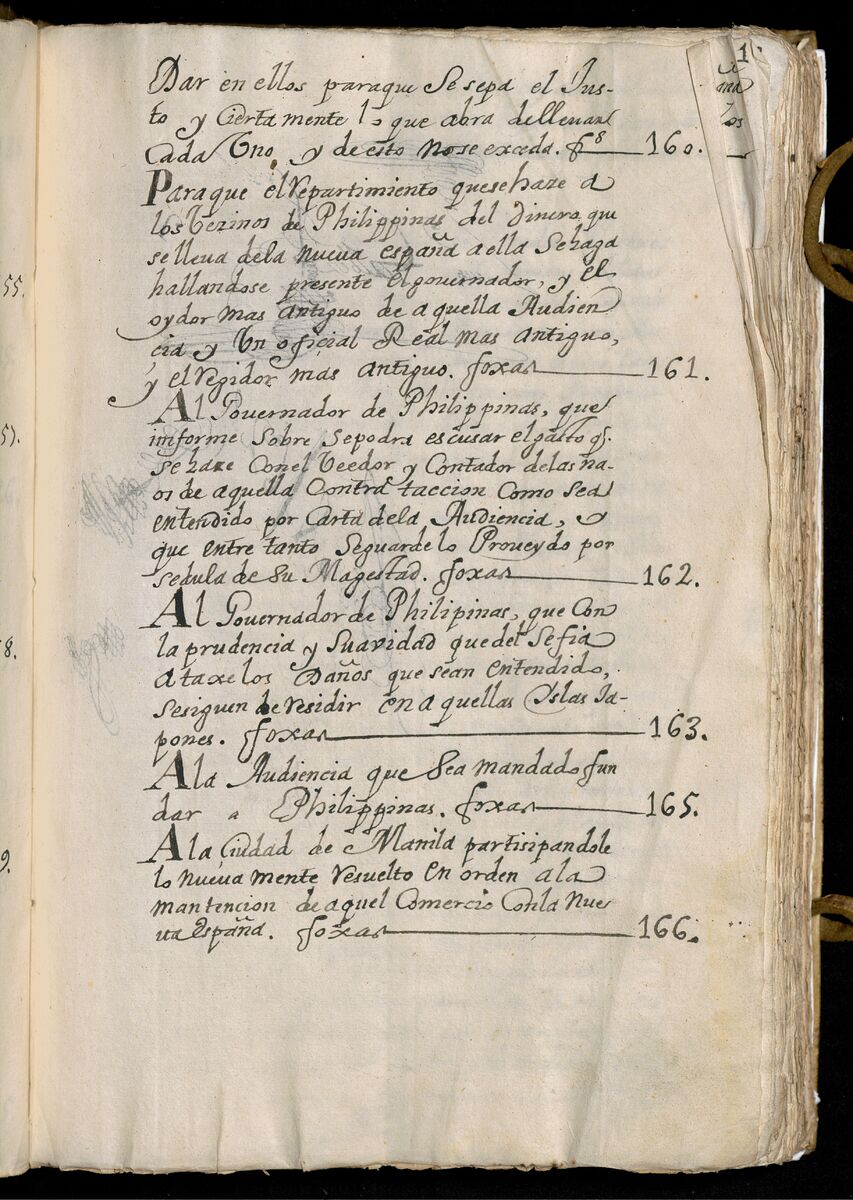 Dar en ellos paraque Se sepa el Jus-
to y Ciertamente lo que abra dellevar
Cada Uno, y de esto no se exceda. fs 160.
Para que el repartimiento que se haze a
los Vezinos de Philippinas del dinero que
se lleva dela nueva españa a ella Se haga
hallandose presente el governador, y el
oydor mas antiguo de aquella Audien
cia y Un oficial Real mas antiguo,
y el regidor más antiguo. foxas 161.
Al Governador de Philippinas, que
imforme sobre sepodra escusar el gasto q.
se haze Con el Veedor y Contador delas na-
os de aquella Contrataccion Como sea
entendido por Carta dela Audiencia, y
que entre tanto Seguarde lo Proveydo por
sedula de Su Magestad. foxas 162.
Al Governador de Philipinas, que Con
la prudencia y Suavidad que del Se fia
ataxe los Daños que sean entendido,
se siguen de residir en aquellas Yslas Ja-
pones. foxas 163.
Ala Audiencia que Sea mandado fun
dar a Philippinas. foxas 165.
A la Ciudad de Manila partisipandole
lo nuevamente resuelto en orden a la
mantencion de aquel Comercio Conla Nue
va España. foxas 166.
55.
57.
58.
9.
1